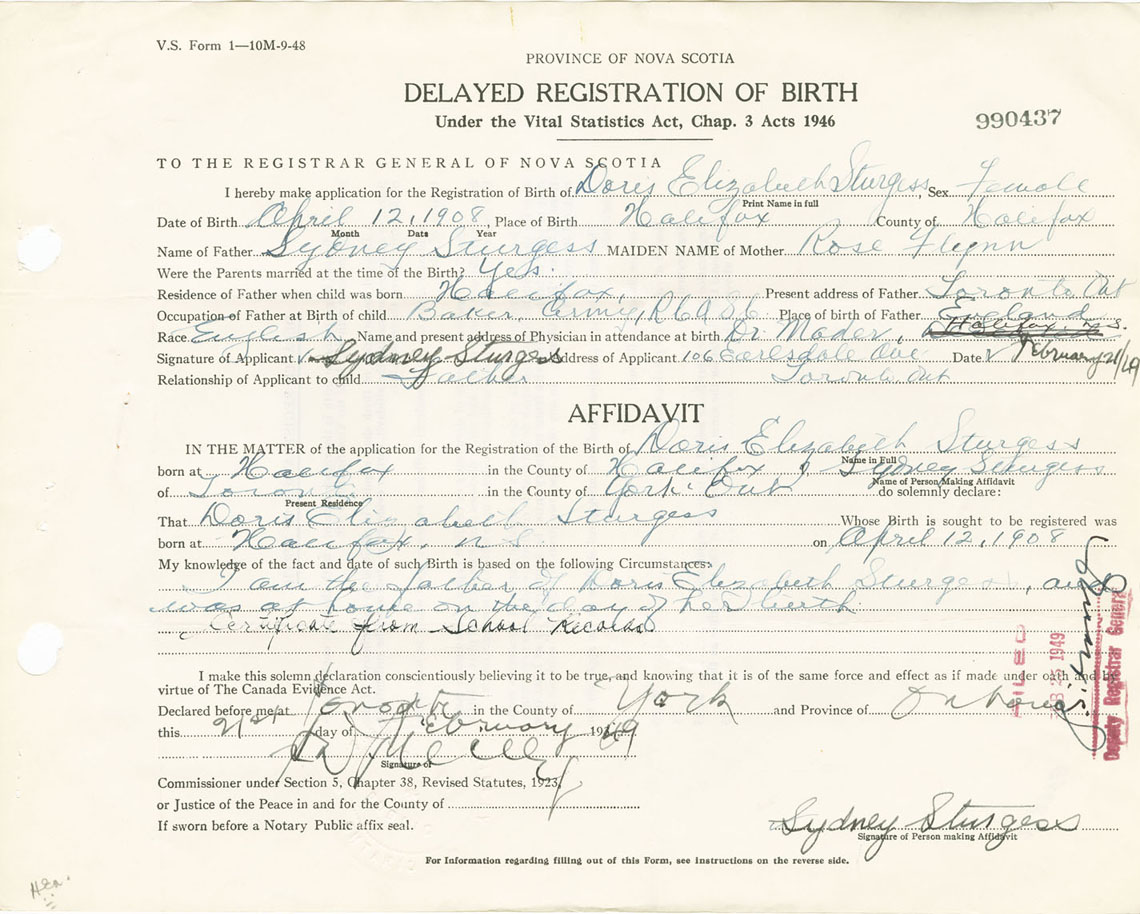 V.S. Form 1—10M-9-48
PROVINCE OF NOVA SCOTIA
DELAYED REGISTRATION OF BIRTH
Under the Vital Statistics Act, Chap. 3 Acts 1946
990437
TO THE REGISTRAR GENERAL OF NOVA SCOTIA
I hereby make application for the Registration of Birth of Doris Elizabeth Sturgess Sex Female
Print Name in full
Date of Birth April 12, 1908, Place of Birth Halifax County of Halifax
Month Date Year
Name of Father Sydney Sturgess MAIDEN NAME of Mother Rose Flynn
Were the Parents married at the time of the Birth? Yes.
Residence of Father when child was born Halifax, Present address of Father Toronto Ont
Occupation of Father at Birth of child Baker Army, Place of birth of Father England
Race English Name and present address of Physician in attendance at birth Dr Mader, Halifax N.S.
Signature of Applicant Sydney Sturgess Address of Applicant 106 Earlsdale Ave Date February 21/49
Relationship of Applicant to child Father Toronto Ont
AFFIDAVIT
IN THE MATTER of the application for the Registration of the Birth of Doris Elizabeth Sturgess
Name in Full
born at Halifax in the County of Halifax I, Sydney Sturgess
Name of Person Making Affidavit
of Toronto in the County of York Ont do solemnly declare:
Present Residence
That Doris Elizabeth Sturgess Whose Birth is sought to be registered was
born at Halifax, N S on April 12, 1908
My knowledge of the fact and date of such Birth is based on the following Circumstances:
I am the father of Doris Elizabeth Sturgess, and
was at home on the day of her birth
Certificate from School Records
I make this solemn declaration conscientiously believing it to be true, and knowing that it is of the same force and effect as if made under oath and by
virtue of The Canada Evidence Act.
Declared before me at Toronto in the County of York and Province of Ontario
this 21st day of February 1949
Signature of
Commissioner under Section 5, Chapter 38, Revised Statutes, 1923,
or Justice of the Peace in and for the County of
If sworn before a Notary Public affix seal.
Sydney Sturgess
Signature of Person making Affidavit
For Information regarding filling out of this Form, see instructions on the reverse side.
FILED
1949
Deputy Registrar General